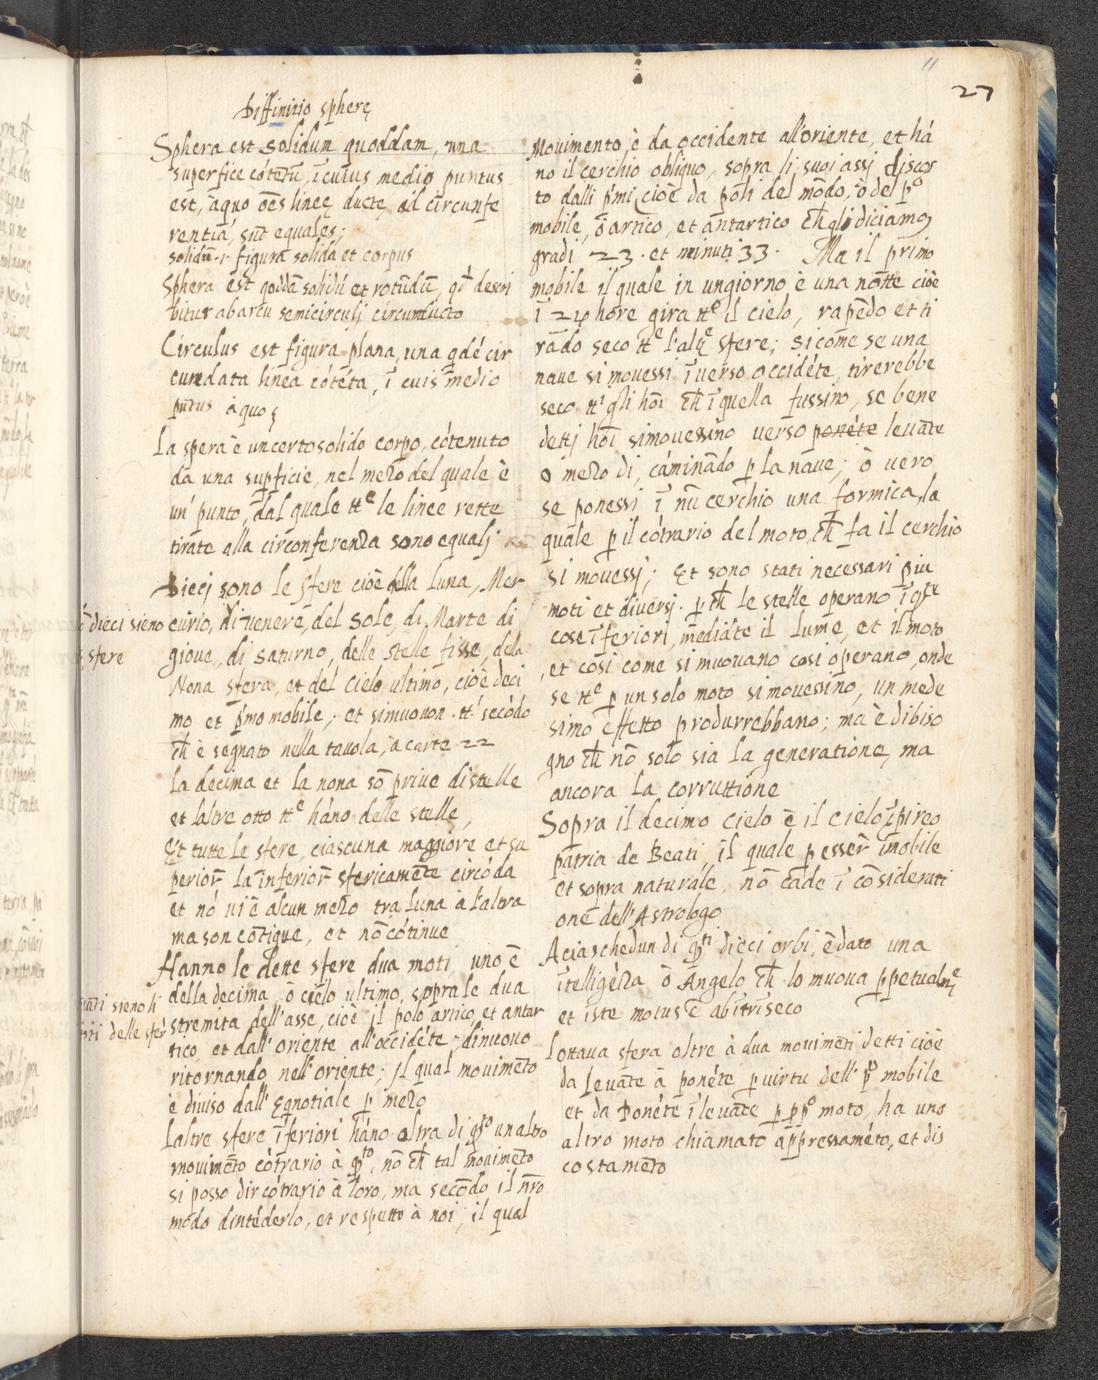 11
27
Diffinitio spherę
Sphera est solidum quoddam, una
superfice cótētū, ī cuius medio puntus
est, aquo oēs lineę ducte ad circunfe
rentia, sūt equales;
solidū .i. figura solida et corpus
Sphera est qoddā solidū et rotūdū, qd̄ descri
bitur ab arcu semicirculi circumducto
Circulus est figura plana, una qdé cir
cumdata linea cótéta, ī cuis medio
pūtus à quo
La spera è un certo solido corpo, cótenuto
da una supficie, nel mezo del quale è
un' punto, dal quale ttᵉ le linee rette
tirate alla circonferenza sono equali
Dieci sono le sfere cioè della luna, Mer-
curio, di uenere, del Sole, di Marte di
dieci sieno
sfere
gioue, di Saturno, delle stelle fisse, dela
Nona sfera, et del Cielo ultimo, cioè deci
mo et p̄mo mobile; et si muouon ttⁱ secōdo
ch̄ è segnato nella tauola, à carte 22
La decima et la nona sō priue di stelle
et laltre otto ttᵉ háno delle stelle,
Et tutte le sfere, ciascuna maggiore et su
perior la īferior sfericamēte circóda
et nó ui è alcun mezo tra luna à l'altra
ma son cōtigue, et nō cótinue
Hanno le dette sfere dua moti, uno è
della decima, ò cielo ultimo, sopra le dua
sieno li
moti delle sfer
stremita dell'asse, cioè il polo artico, et antar
tico, et dall'oriente all'occidéte, dinuouo
ritornando nell'oriente; Il qual mouimēto
è diuiso dall' Eqnotiale p mezo
Laltre sfere īferiori háno oltra di q̄sto un altro
mouimēto cótrario à q̄sto, nō ch̄ tal mouimēto
si posso dir cótrario à loro, ma secōdo il nr̄o
modo dintéderlo, et respetto à noi, il qual
Mouimento, è da occidente all'oriente, et há
no il cerchio obliquo, sopra li suoi assi discos
to dalli p̄mi cioè da poli del mōdo, ò del pº
mobile, ò artico, et antartico ch̄ gli diciamo
gradi 23. et minuti 33. Ma il primo
mobile il quale in ungiorno è una notte cioè
ī 24 hore gira ttº il cielo, rapēdo et ti
rādo seco ttᵉ l'altᵉ sfere; si come se una
naue si mouessi ī uerso occidéte, tirerebbe
seco ttⁱ gli hōi ch̄ ī quella fussino, se bene
detti hōi si mouessino uerso ponéte leuāte
o mezo di, cáminādo p la naue; ò uero
se ponessi ī nū cerchio una formica, la
quale p il cótrario del moto, ch̄ fa il cerchio
si mouessi; Et sono stati necessari piu
moti et diuersi. p ch̄ le stelle operano ī q̄ste
cose īferiori, mediáte il lume, et il moto
, et cosi come si muouano cosi operano, onde
se ttᵉ p un solo moto si mouessino, un mede
simo effetto produrrebbano; ma è dibiso
gno ch̄ nō solo sia la generatione, ma
ancora la corruttione
Sopra il decimo Cielo è il Cielo īpireo
patria de Beati, il quale p esser īmobile
et sopra naturale, nō cade ī cōsiderati
one dell'Astrologo
A ciaschedun di q̄sti dieci orbi, è dato una
ītelligēza ò Angelo ch̄ lo muoua ppetualmᵉ
et iste motus ē ab ītrīseco
Lottaua sfera oltre à dua mouimēti detti cioè
da leuāte à ponéte p uirtu dell' pº mobile
et da Ponéte ī leuāte p ppº moto, ha uno
altro moto chiamato appressaméto, et dis
costamēto